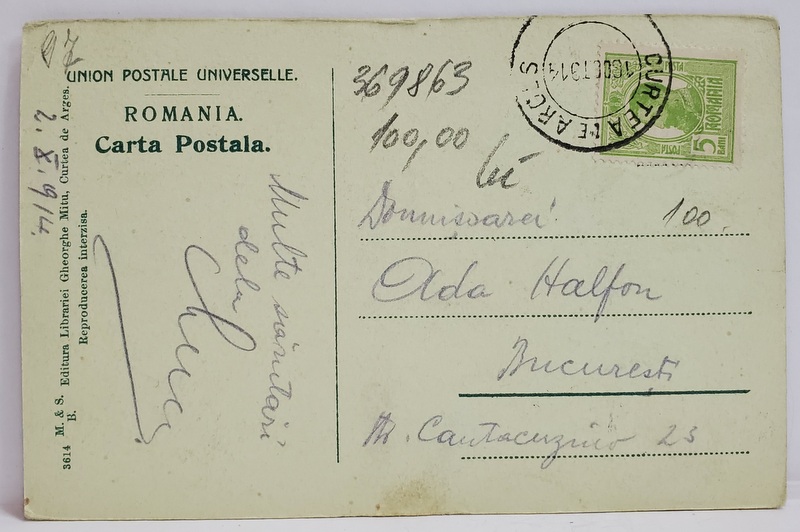 97
UNION POSTALE UNIVERSELLE.
ROMANIA.
Carta Postala.
2.X.914.
3614 M. & S. Editura Librariei Gheorghe Mitu, Curtea de Arges.
B. Reproducerea interzisa.
Multe sănutări
dela
369863
100,00
lei
CURTEA DE ARGEȘ
POSTA
ROMANIA
5
BANI
POSTA
Domnișoarei
100.
Ada Halfon
București
Cantacuzino 23